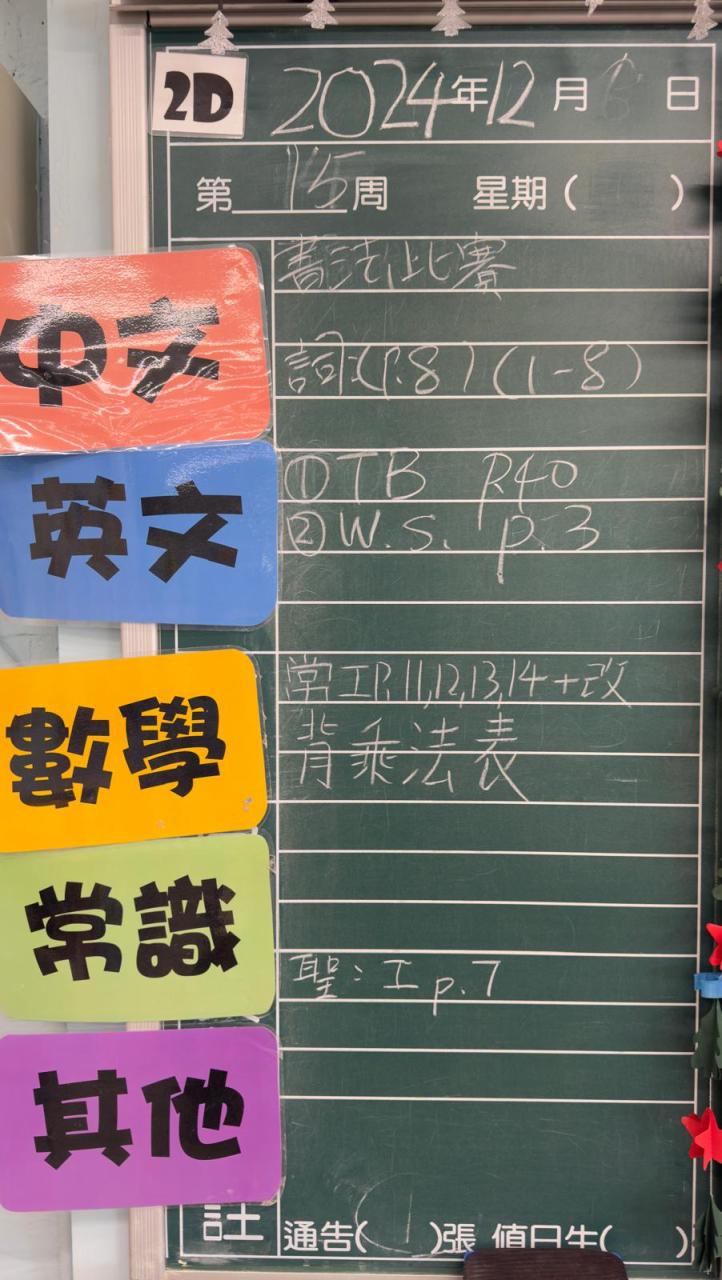 2D 2024年12月 日
第15周 星期( )
中文
書法比賽
詞:(P.8)(1-8)
英文
①TB P.40
②W.S. p.3
數學
常工P.11,12,13,14+改
背乘法表
常識
聖:工p.7
其他
註 通告(1)張 值日生( )